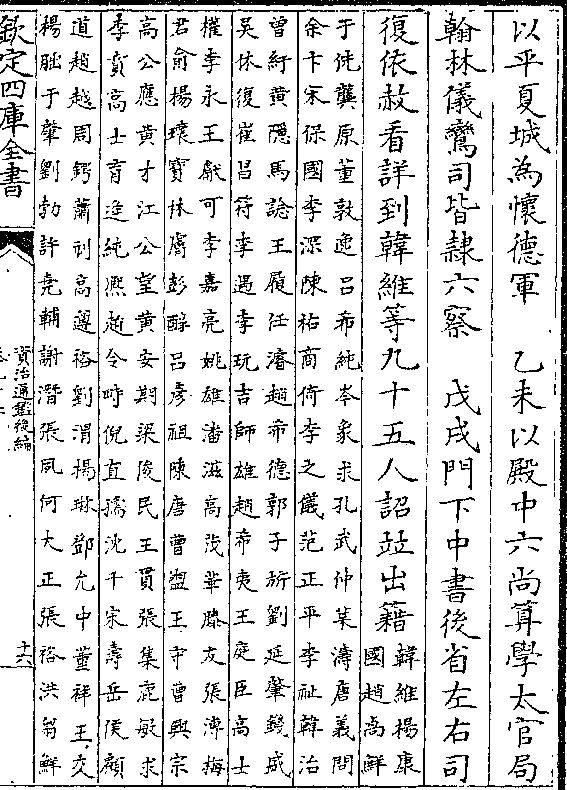 以平夏城為懷德軍　乙未以殿中六尚算學太官局
翰林儀鸞司皆隷六察　戊戌門下中書後省左右司
復依赦看詳到韓維等九十五人詔竝出籍
韓維楊康
國趙高鮮
于侁龔原董敦逸呂希純岑象求孔武仲葉濤唐義問
余卞宋保國李深陳祐商倚李之儀范正平李祉韓治
曾紆黄隱馬諗王履任濬趙希德郭子旂劉延肇錢盛
吳休復崔昌符李遇李玩吉師雄趙希夷王庭臣高士
權李永王獻可李嘉亮姚雄潘滋高茂華滕友張溥梅
君俞楊瓌寶林膚彭醇呂彥祖陳唐曹盥王守曹興宗
高公應黄才江公望黄安期梁俊民王貫張集鹿敏求
季賁高士育逄純熙趙令畤倪直孺沈千宋壽岳侯顧
道趙越周鍔蕭刓高遵裕劉渭楊琳鄧允中董祥王交
楊朏于肇劉勃許堯輔謝潛張夙何大正張裕洪芻鮮
欽定四庫全書
資治通鑑後編
十六